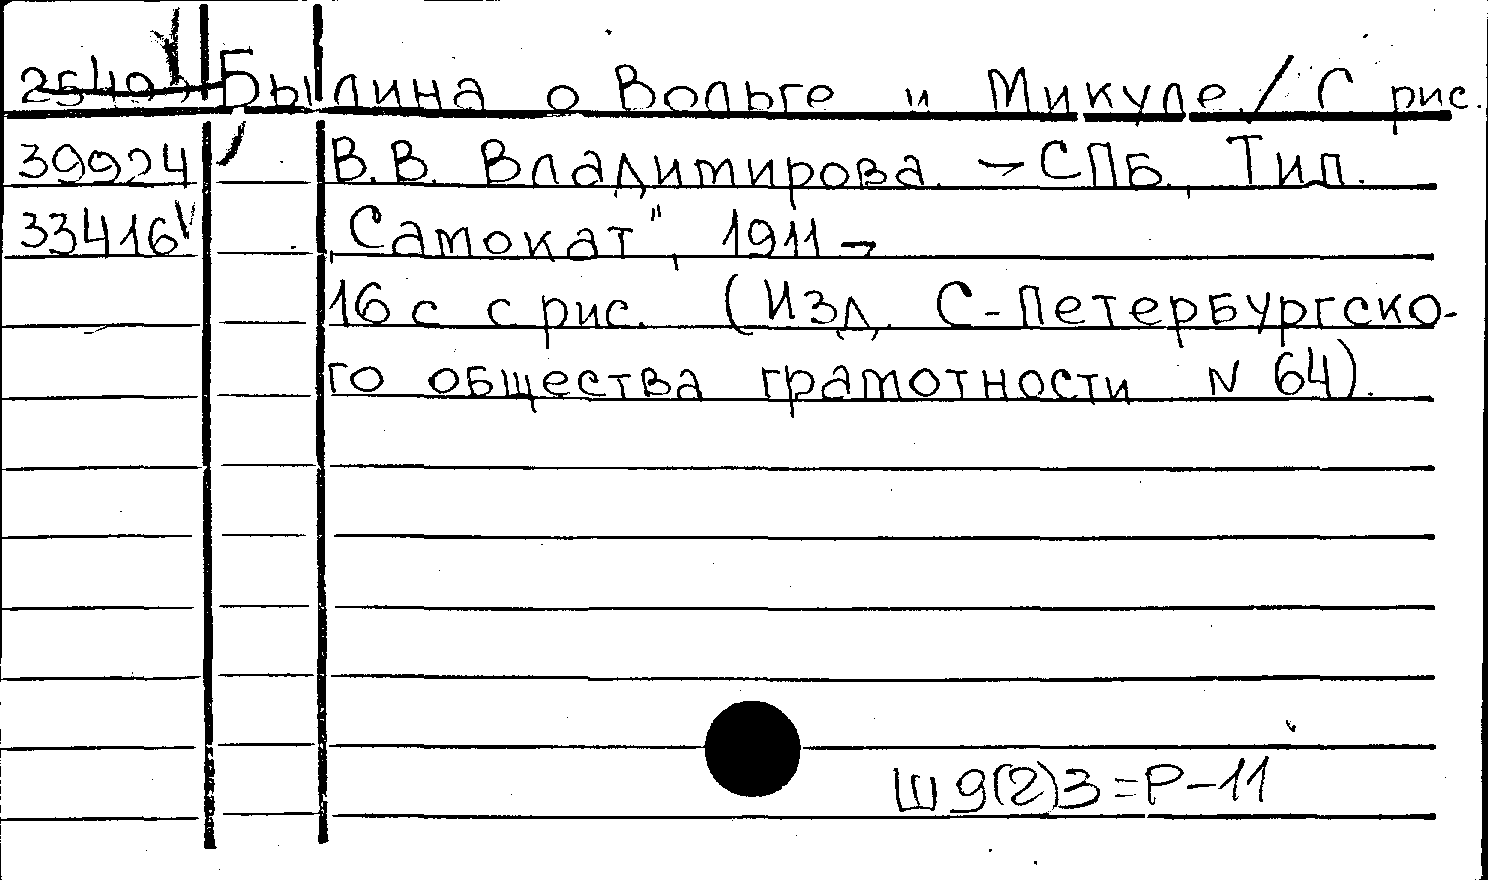 Былина о Вольге и Микуле / С рис.
39924 В.В. Владимирова. – СПБ., Тип.
33416 V „Самокат", 1911 –
16 с с рис. (Изд. С-Петербургско-
го общества грамотности N 64).
Ш 9(2)3=Р-11